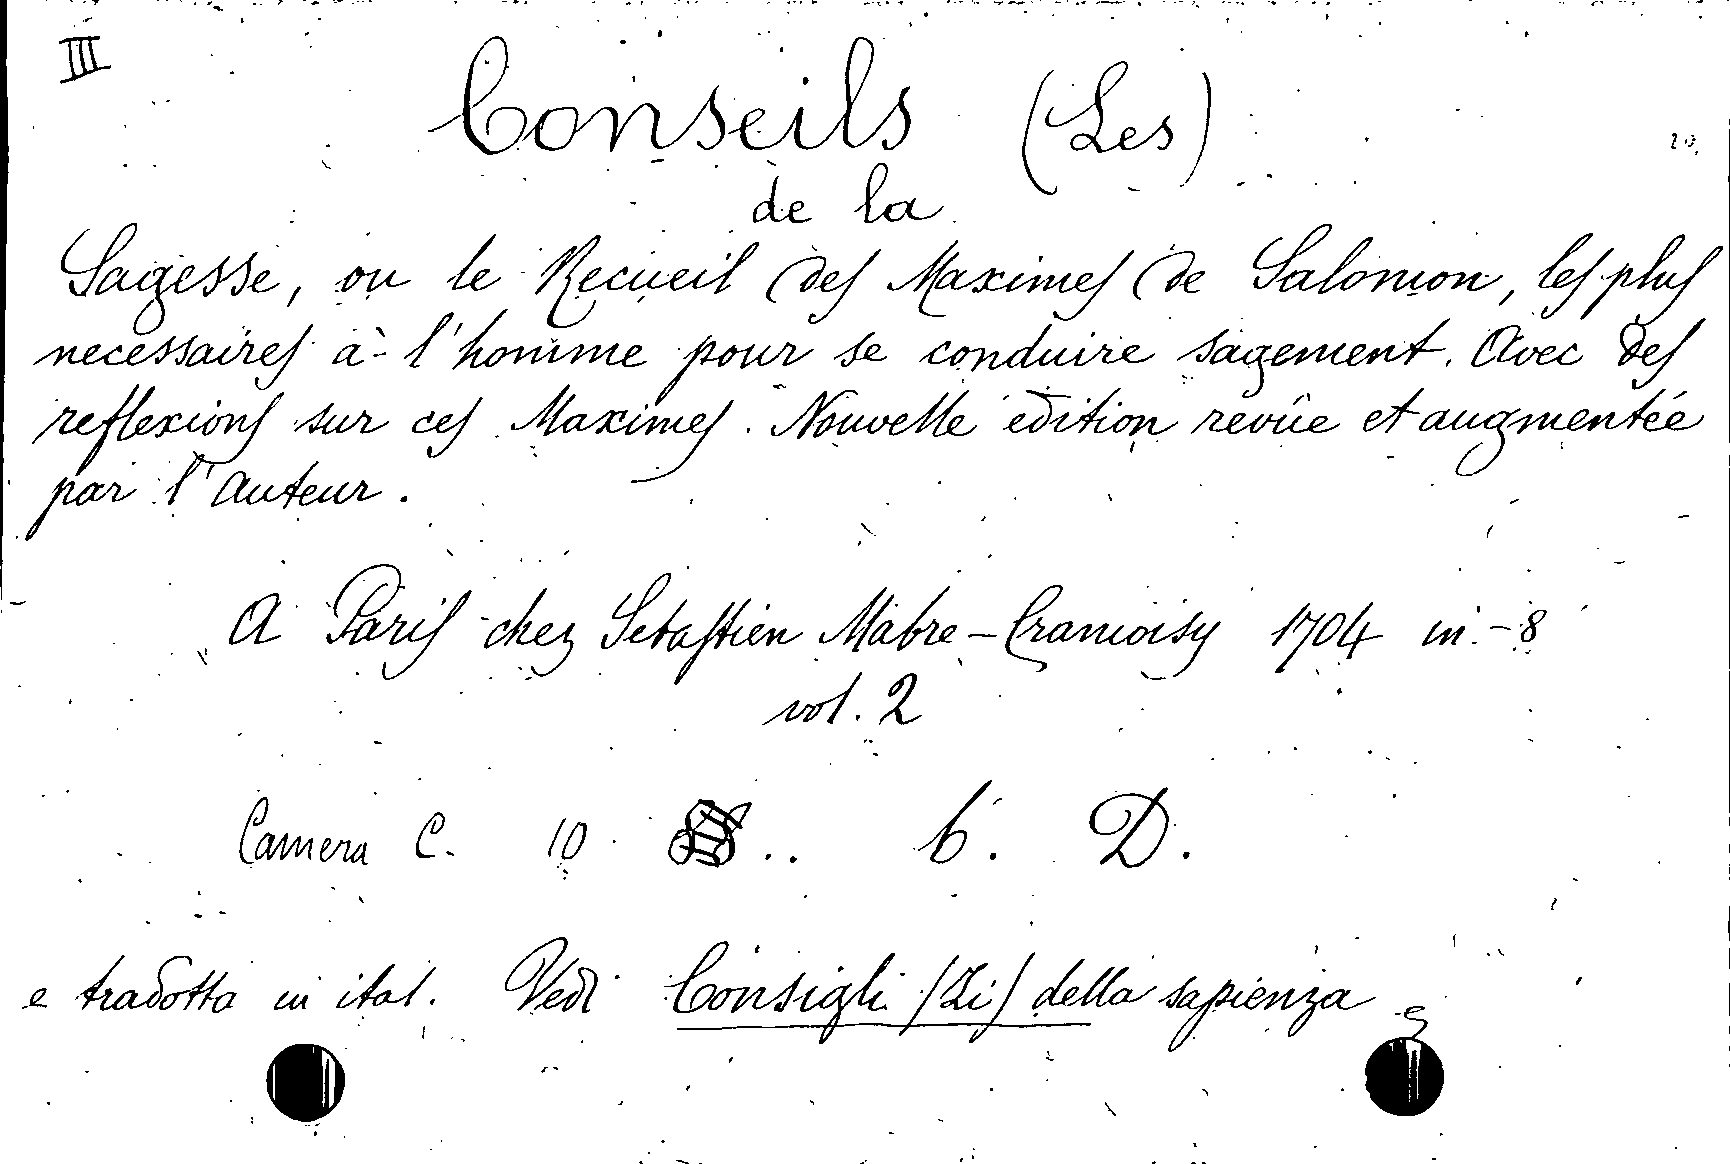 III
Conseils (Les)
de la
Sagesse, ou le Recueil des Maximes de Salomon, les plus
necessaires à l'homme pour se conduire sagement. Avec des
reflexions sur ces Maximes. Nouvelle edition revûe et augmentée
par l'auteur.
A Paris chez Sebastien Mabre-Cramoisy 1704 in-8
vol. 2
Camera C. 10 .. 6. D.
e tradotta in ital. Vedi Consigli (Li) della sapienza